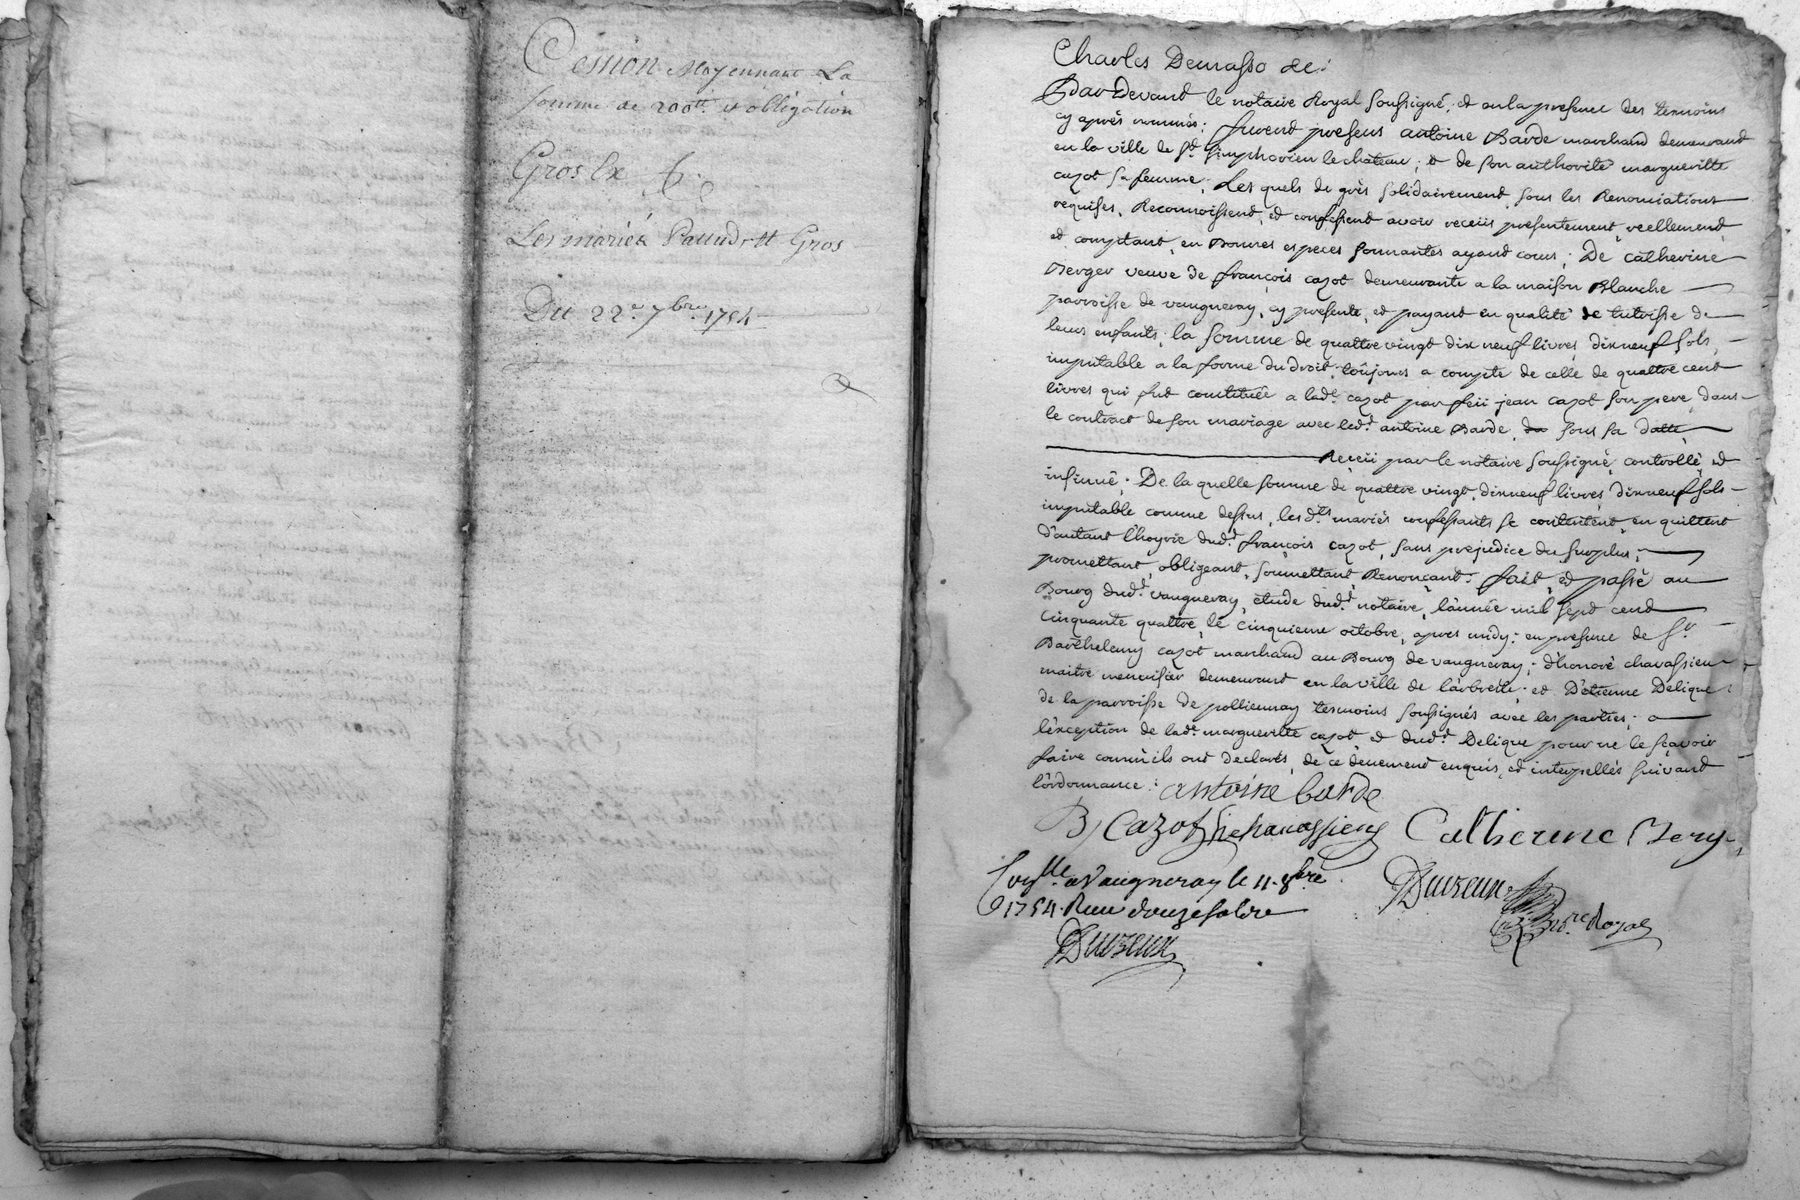 Cession Moyennant La
somme de 200tt et obligation
Gros Cx
Les mariés Gros
Du 22e 7bre 1754
Charles Demasso de:
Pardevant le notaire Royal soussigné, et en la presence des temoins
cy après nommés; furent presens antoine Barde marchand demeurant
en la ville de St simphorien le chateau; et de son authorité margueritte
cazot sa femme; Les quels de grès solidairement, sous les Renonciations
requises, Reconnoissent, et confessent avoir receüs présentement, reellement,
et comptant, en Bonnes especes sonnantes ayant cours; De catherine
Berger veuve de françois cazot demeurante a la maison Blanche
parroisse de vaugneray, cy presente, et payant en qualité de tutrisse de
leurs enfants, la somme de quattre vingt dix neuf livres, dixneuf sols,
imputable a la forme du droit, toûjours a compte de celle de quattre cent
livres qui fut constituée a lade cazot par feü jean cazot son pere, dans
le contract de son mariage avec led.t antoine Barde, sous sa datte,
Receü par le notaire soussigné, controllé, et
insinué; De la quelle somme de quattre vingt, dixneuf livres, dixneuf sols
imputable comme dessus, lesd.ts mariés confessants se contentent, en quittent
d'autant l'hoyrie dud.t françois cazot, sans prejudice du surplus;
promettant, obligeant, soumettant, Renonçant. fait, et passé au
Bourg dud.t vaugneray, etude dud.t notaire, l'année mil sept cent
cinquante quattre, le cinquieme octobre, apres midy: en presence de Sr
Barthelemy cazot marchand au Bourg de vaugneray; d'honoré chavassieu
maitre menuisier demeurant en la ville de l'arbresle; et D'etienne Delique
de la parroisse de pollionnay temoins soussignés avec les parties; a
l'éxception de lade margueritte cazot et dud.t Delique pour ne le sçavoir
faire comm'ils ont declarés, de ce düement enquis, et interpellés suivant
l'ordonnance: antoine barde
B Cazot hchavassieu Catherine Berg
Con.lle a Vaugneray le 11. 8bre
1754. Reçu douze sols
Duvzeux
Duvzeux
nre Royal